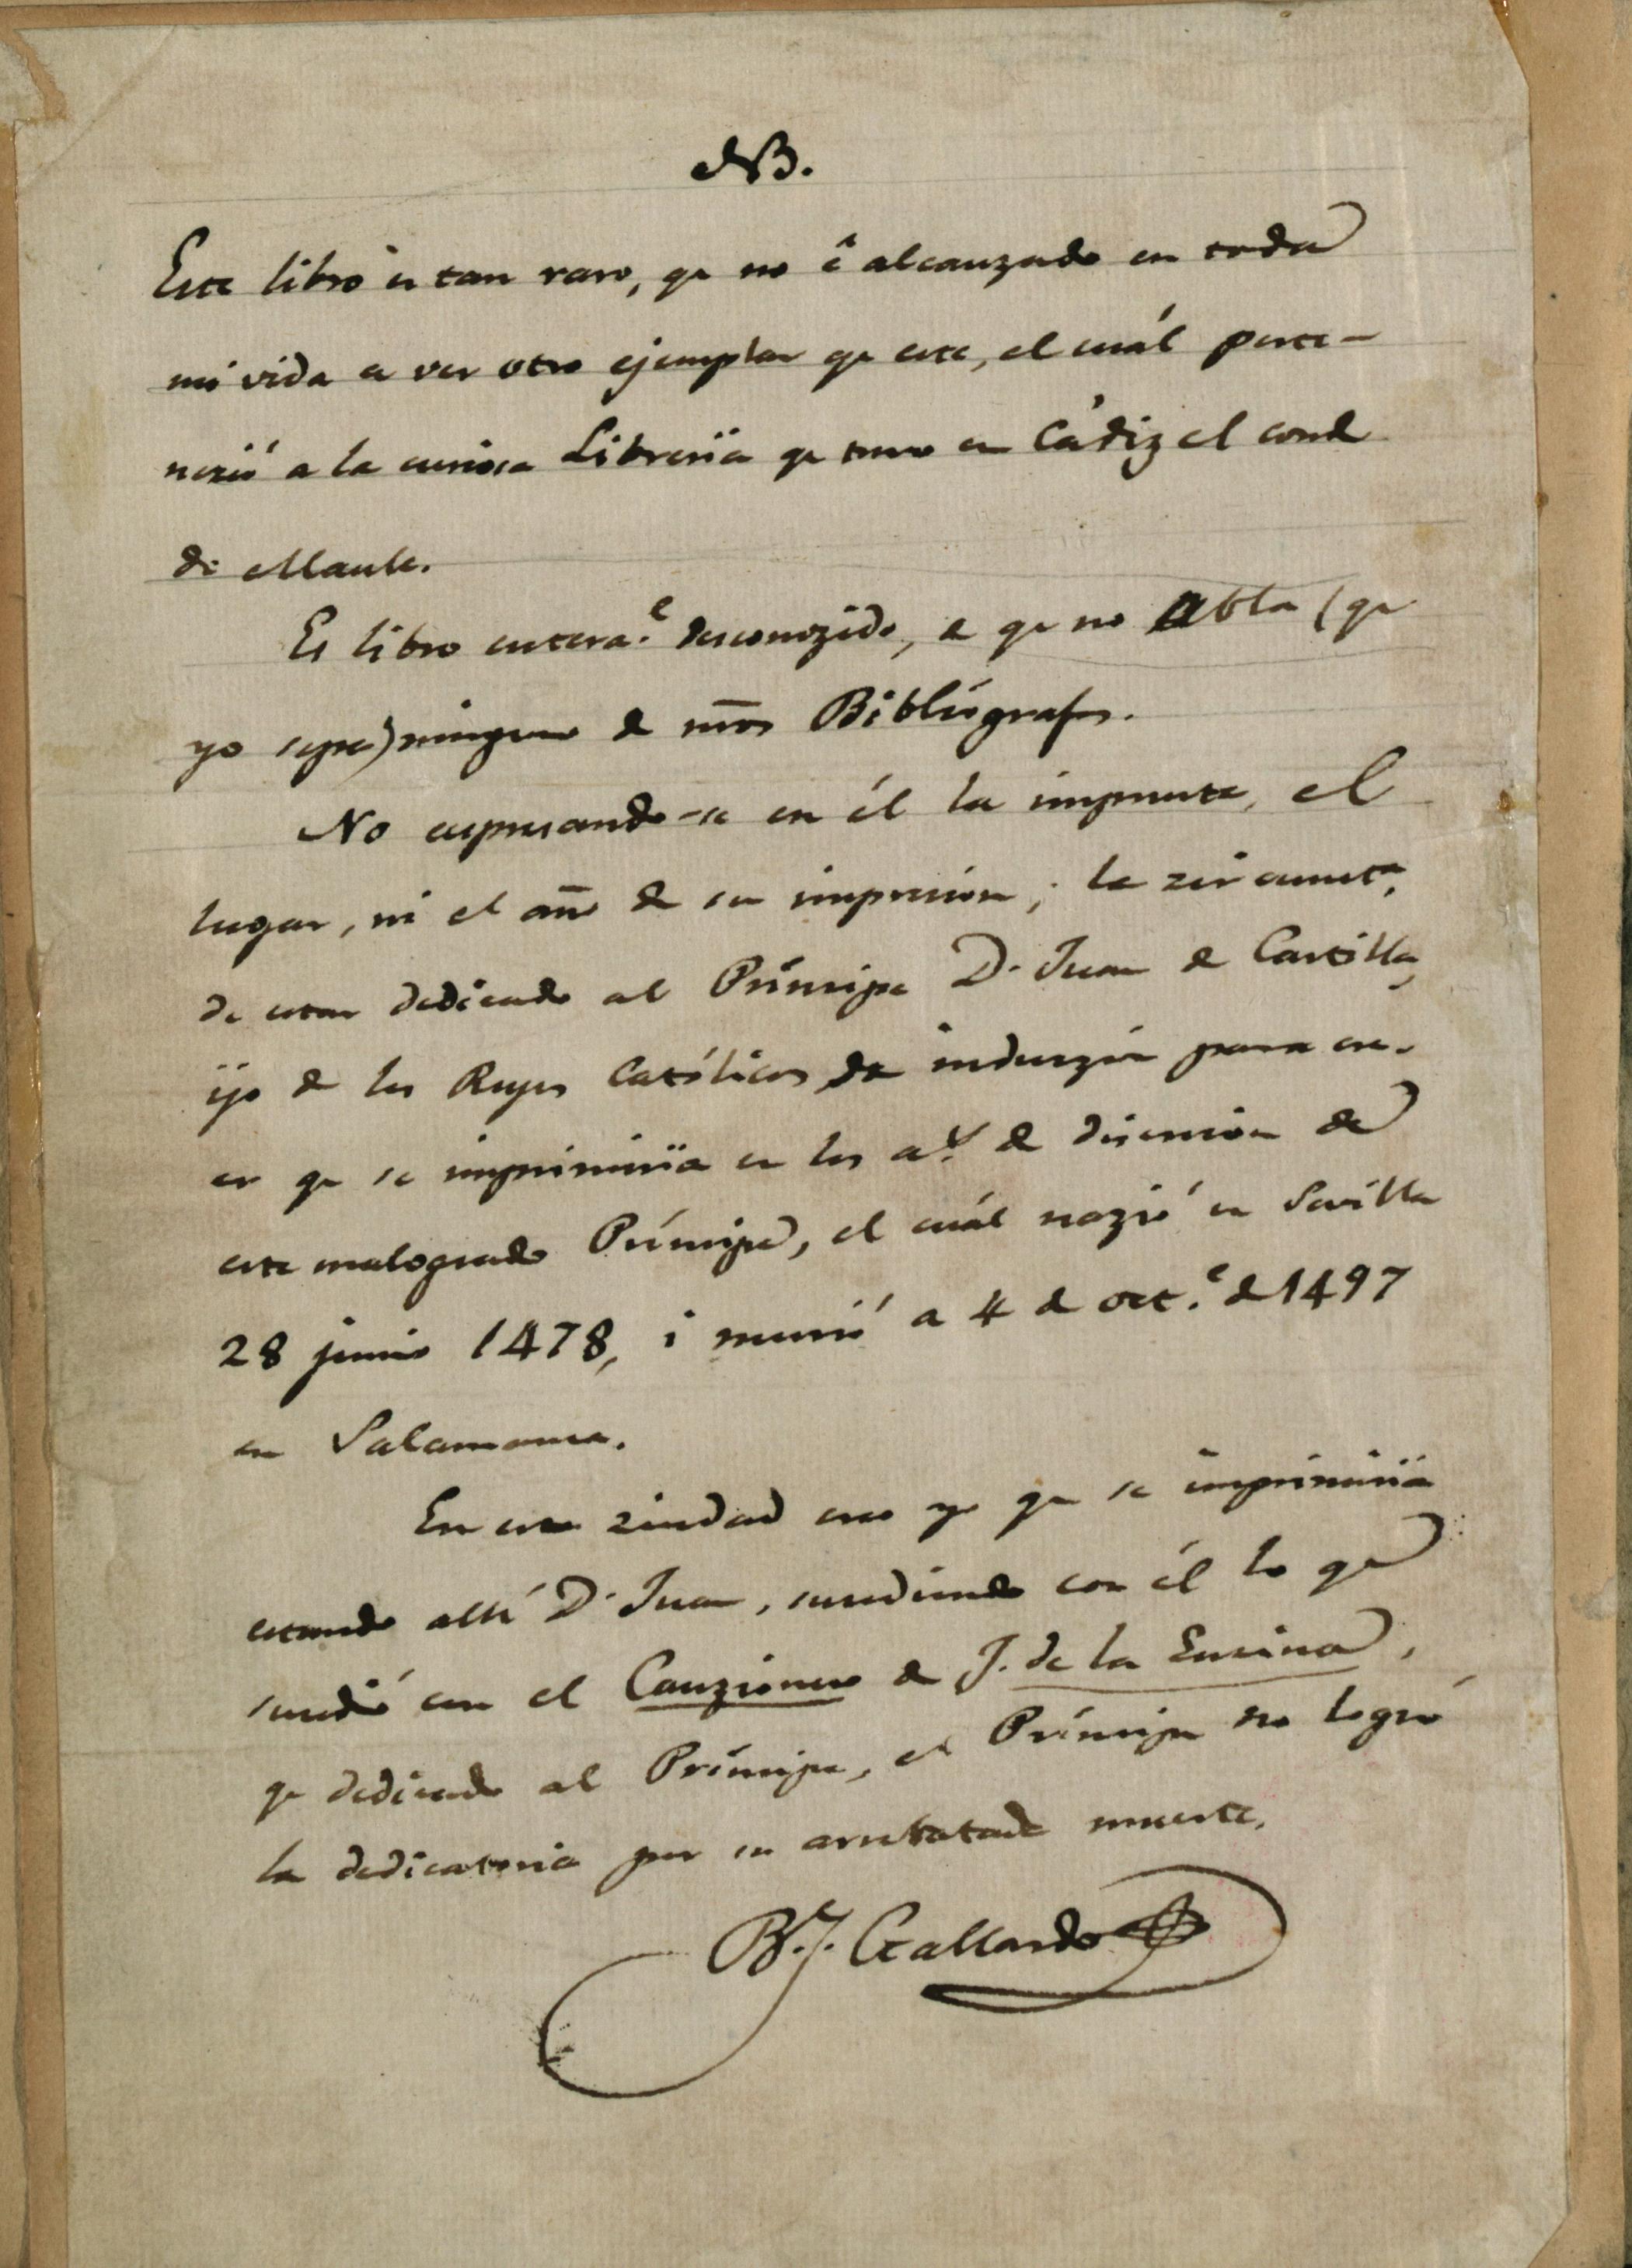 NB.
Este libro es tan raro, qe no ê alcanzado en toda
mi vida a ver otro ejemplar qe este, el cuál perte-
nezió a la curiosa Librerïa qe tuvo en Cádiz el conde
de Maule.
Es libro entera.e desconozido, de qe no abla (qe
yo sepa) ninguno de nros Bibliógrafos.
No espresando-se en él la imprenta, el
lugar, ni el año de su impresión; la zircunsta
de estar dedicado al Prínzipe D. Juan de Castilla,
ijo de los Reyes Católicos, da induczión para cre-
er qe se imprimirïa en los a.s de discrezión de
este malogrado Prínzipe, el cuál nazió en Sevilla
28 junio 1478, i murió a 4 de oct.e de 1497
en Salamanca.
En esta ziudad creo yo qe se imprimirïa
estando allí D. Juan, suzediendo con él lo qe
suzedió con el Canzionero de J. de la Enzina,
qe dedicado al Prínzipe, el Prínzipe no logró
la dedicatoria por su arrebatada muerte.
B. J. Gallardo